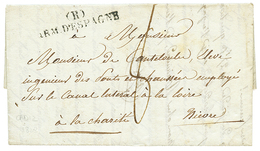 (B)
ARM. D'ESPAGNE
à Monsieur
Monsieur de Constantin, Élève
ingenieur des Ponts et chaussées employé
Sur le Canal lateral à la loire
à la charité Nievre